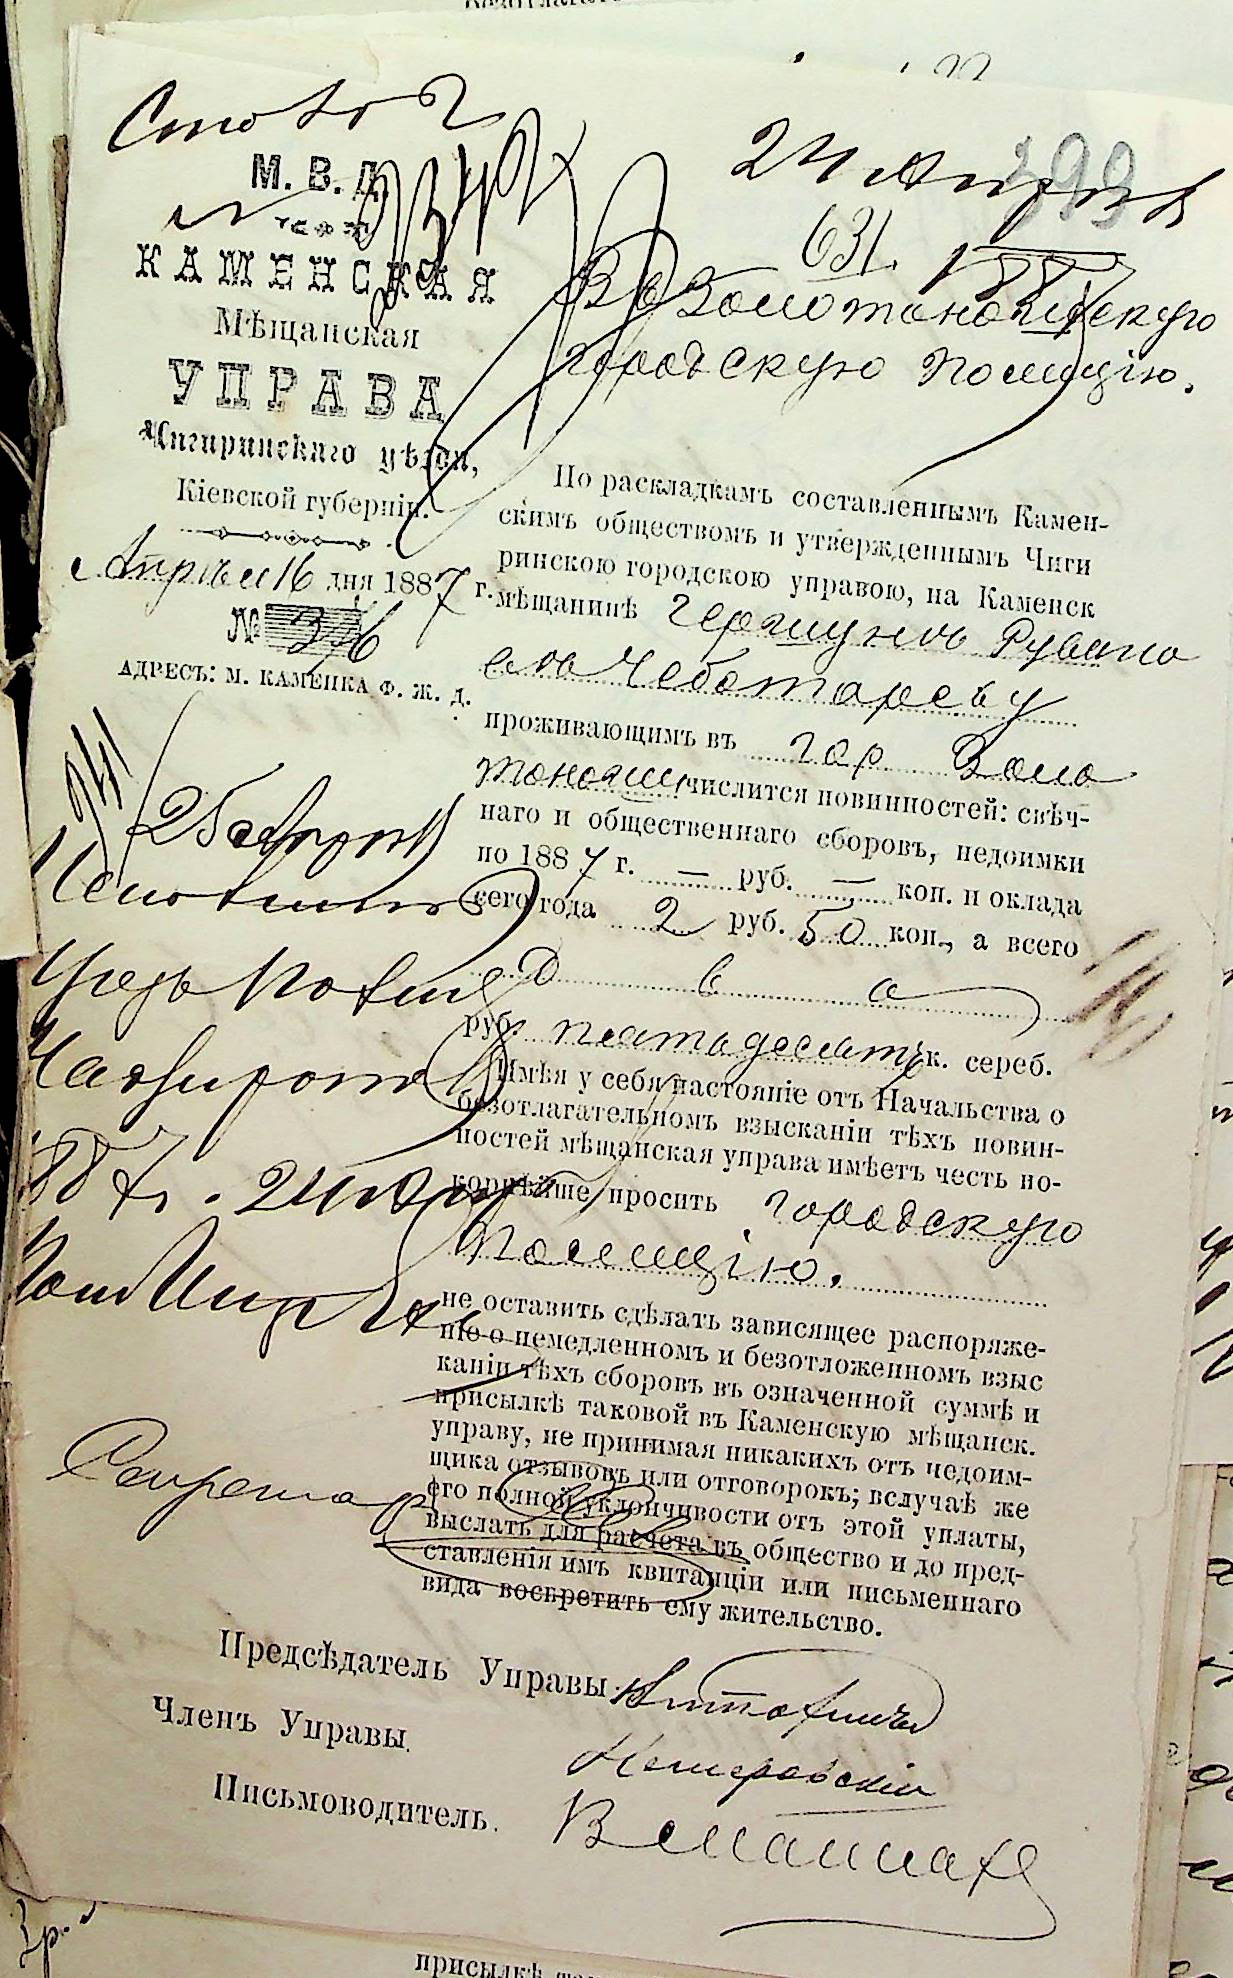 М. В. Д.
КАМЕНСКАЯ
Мѣщанская
УПРАВА
Чигиринскаго уѣзда,
Кіевской губерніи.
Апрѣля 16 дня 1887 г.
№ 376
АДРЕСЪ: М. КАМЕНКА Ф. Ж. Д.
24 Апрѣля
399
631.
1887
Въ Золотоношскую
городскую полицію.
По раскладкамъ составленнымъ Камен-
скимъ обществомъ и утвержденнымъ Чиги
ринскою городскою управою, на Каменск
мѣщанинѣ Гершунъ Рувино
въ Чеботаревѣ
проживающимъ въ гор Золо
тоноши числится повинностей: свѣч-
наго и общественнаго сборовъ, недоимки
по 1887 г. — руб. — коп. и оклада
сего года 2 руб. 50 коп., а всего
Два
руб. пятьдесятъ к. сереб.
Имѣя у себя настояніе отъ Начальства о
безотлагательномъ взысканіи тѣхъ повин-
ностей мѣщанская управа имѣетъ честь по-
корнѣйше просить городскую
Полицію.
не оставить сдѣлать зависящее распоряже-
ніе о немедленномъ и безотложенномъ взыс
каніи тѣхъ сборовъ въ означенной суммѣ и
присылкѣ таковой въ Каменскую мѣщанск.
управу, не принимая никакихъ отъ недоим-
щика отзывовъ или отговорокъ; вслучаѣ же
его полной уклончивости отъ этой уплаты,
выслать для расчета въ общество и до пред-
ставленія имъ квитанціи или письменнаго
вида воспретить ему жительство.
941
25 Апрѣля
1887 г. 24 Апр
Секретар
Предсѣдатель Управы
Членъ Управы.
Письмоводитель.
присылкѣ